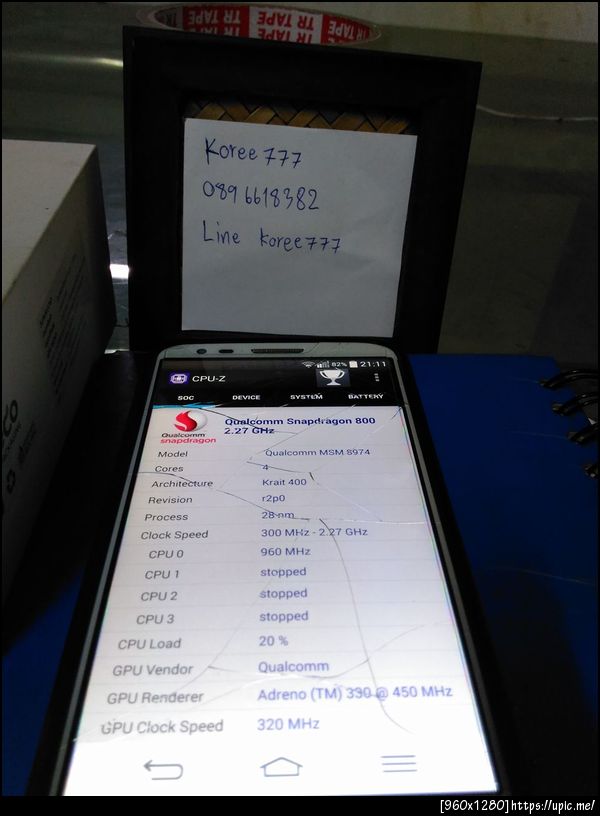 TR TAPE TR TAPE TR TAPE
Koree 777
089 6618382
Line Koree777
82% 21:11
CPU-Z
SOC DEVICE SYSTEM BATTERY
Qualcomm Snapdragon 800
2.27 GHz
Qualcomm
snapdragon
Model Qualcomm MSM 8974
Cores 4
Architecture Krait 400
Revision r2p0
Process 28 nm
Clock Speed 300 MHz - 2.27 GHz
CPU 0 960 MHz
CPU 1 stopped
CPU 2 stopped
CPU 3 stopped
CPU Load 20 %
GPU Vendor Qualcomm
GPU Renderer Adreno (TM) 330 @ 450 MHz
GPU Clock Speed 320 MHz
[960x1280]https://upic.me/